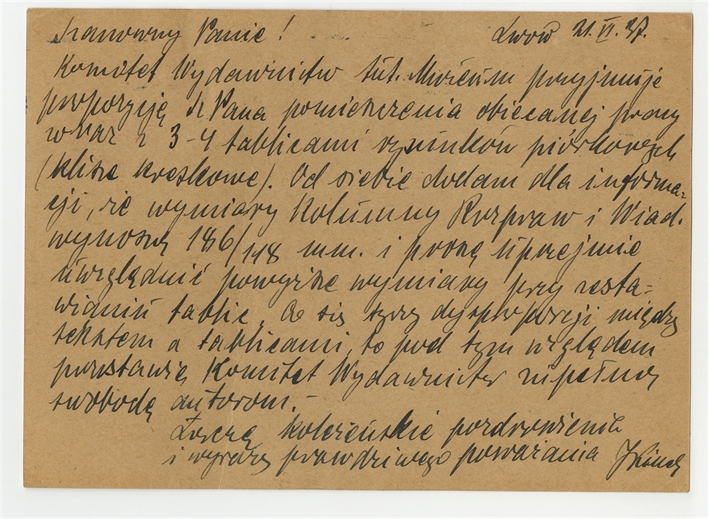 Szanowny Panie! Lwów 21.VI.37.
Komitet Wydawnictw tut. Muzeum przyjmuje
propozycję Pana pomieszczenia obiecanej pracy
wraz z 3-4 tablicami rysunków piórkowych
(klisze kreskowe). Od siebie dodam dla informa-
cji, że wymiary kolumny Rozpraw i Wiad.
wynoszą 186/118 mm. i proszę uprzejmie
uwzględnić powyższe wymiary przy zesta-
wianiu tablic. Co się tyczy dysproporcji między
tekstem a tablicami, to pod tym względem
pozostawia Komitet Wydawnictw zupełną
swobodę autorom.-
Łączę koleżeńskie pozdrowienia
i wyrazy prawdziwego poważania